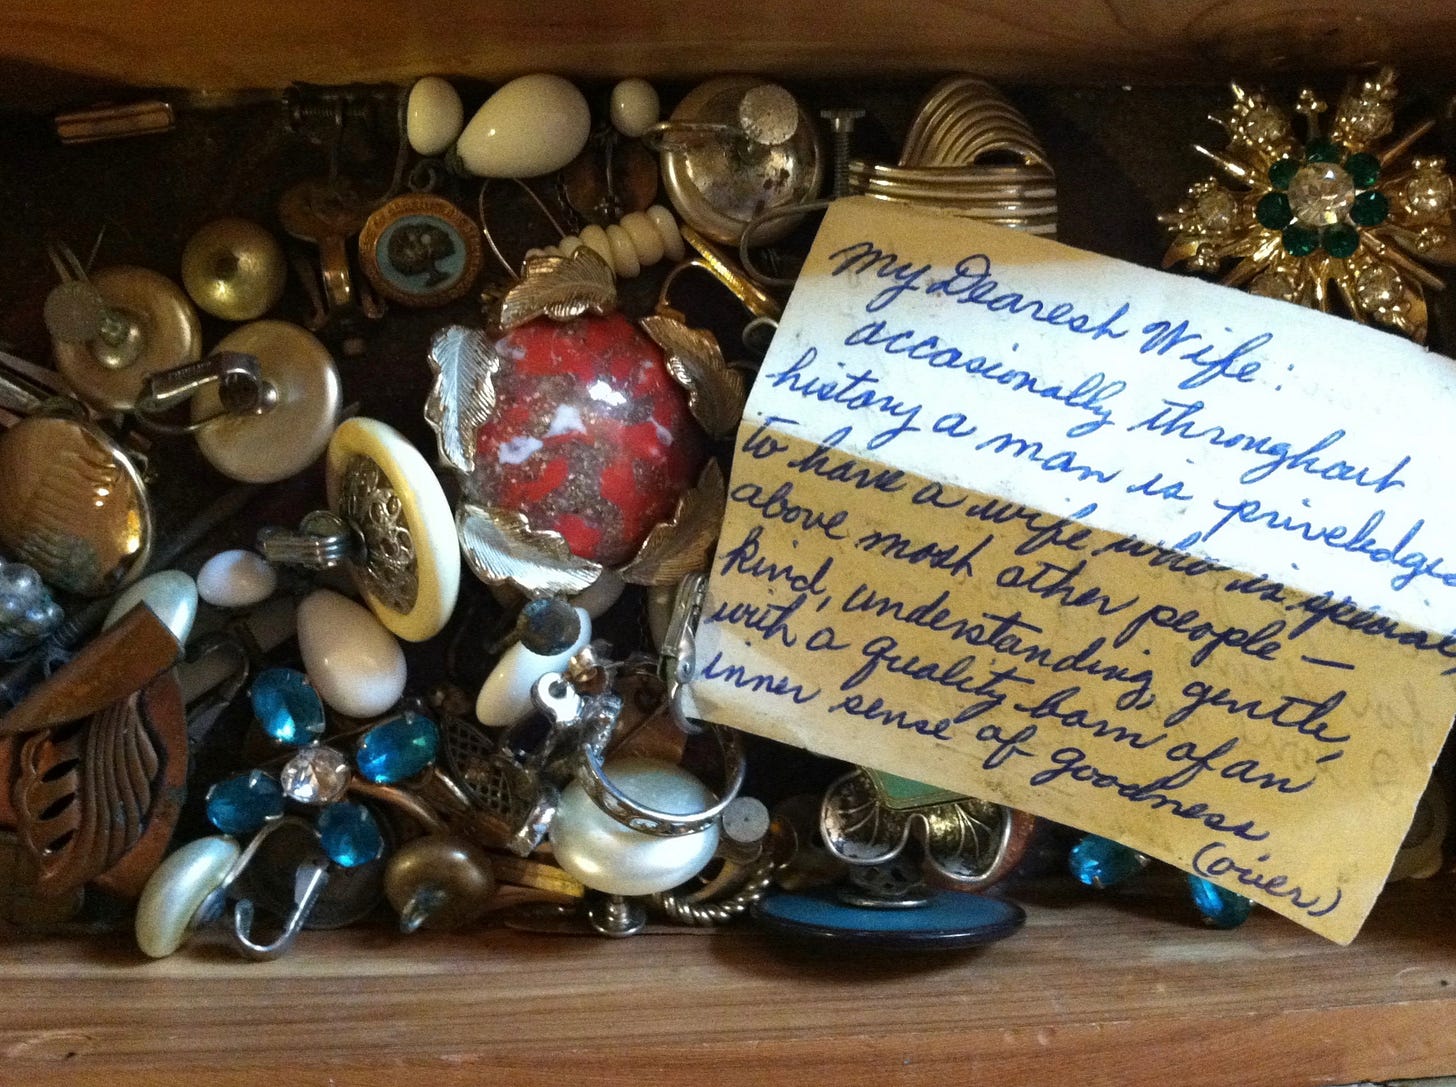 My Dearest Wife:
occasionally throughout
history a man is
to have a wife who is
above most other people —
kind, understanding, gentle,
with a quality born of an
inner sense of goodness
(over)